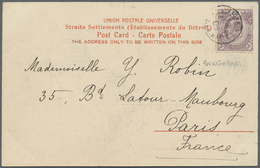 UNION POSTALE UNIVERSELLE
Straits Settlements (Etablissements du Détroit)
Post Card - Carte Postale
THE ADDRESS ONLY TO BE WRITTEN ON THIS SIDE
Mademoiselle Y. Robin
35, Bd Latour-Maubourg
Paris
France